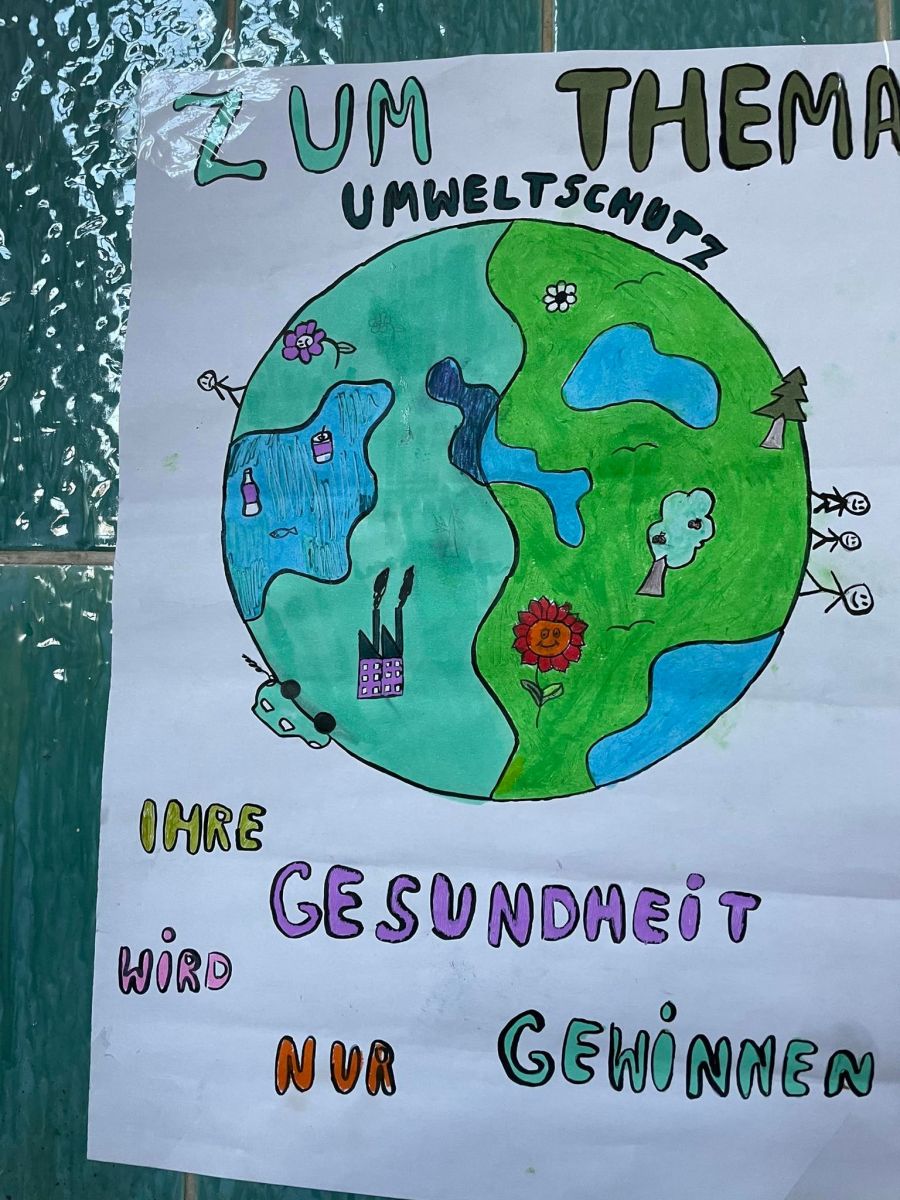 ZUM THEMA
UMWELTSCHUTZ
IHRE
GESUNDHEIT
WiRD
NUR GEWiNNEN